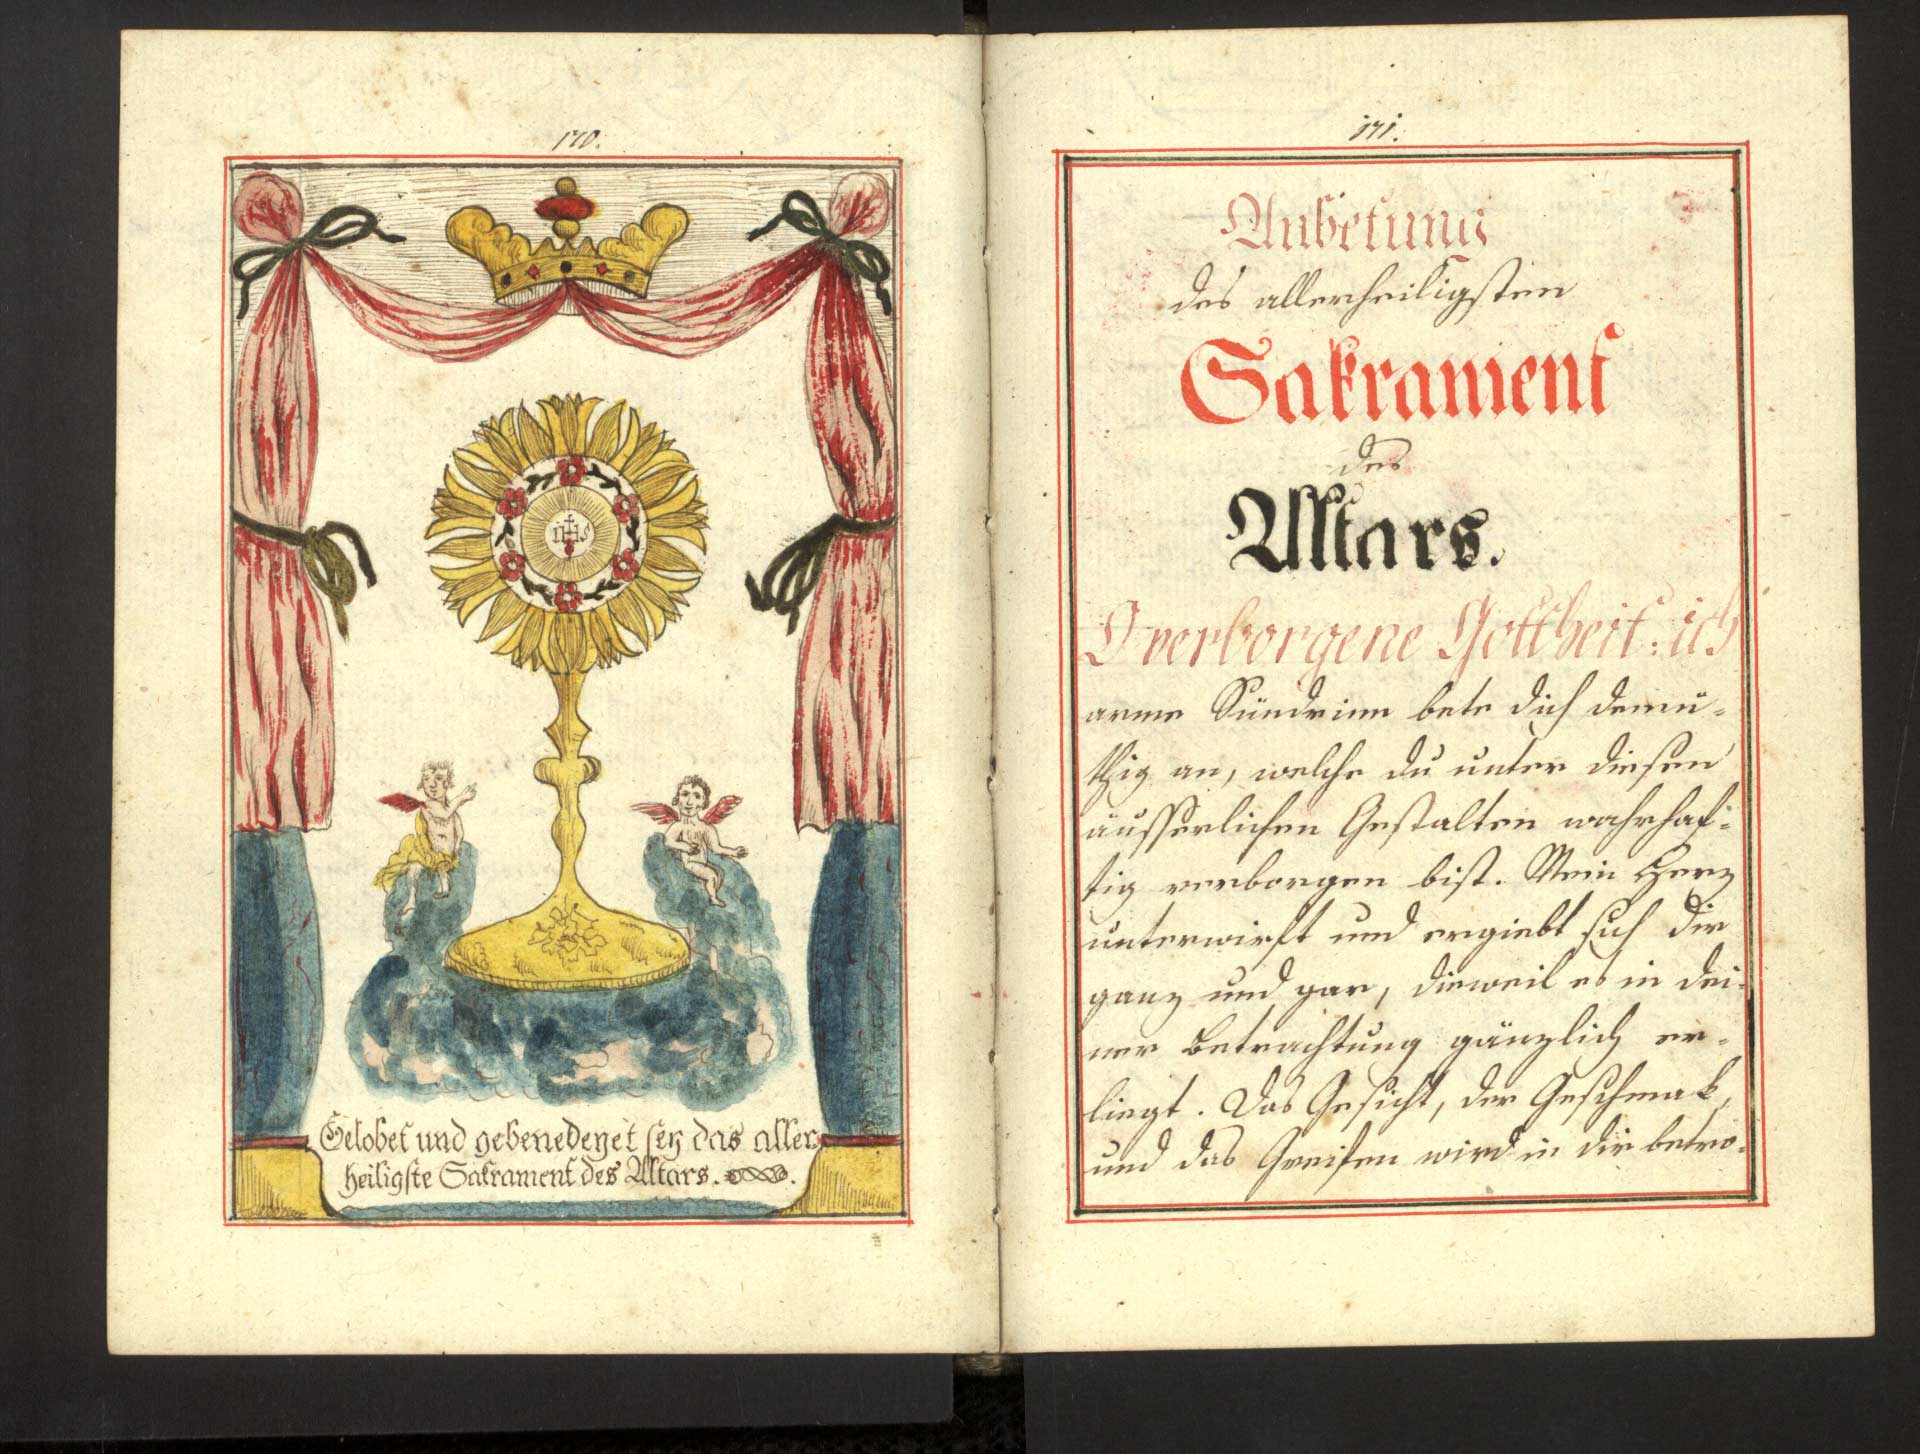 170.
IHS
Gelobet und gebenedeyet sey das aller
heiligste Sakrament des Altars.
171.
Anbetung
des allerheiligsten
Sakrament
des
Altars.
O verborgene Gottheit: ich
arme Sünderinn bete dich demü-
thig an, welche du unter diesen
äusserlichen Gestalten wahrhaf-
tig verborgen bist. Mein Herz
unterwirft und ergiebt sich dir
ganz und gar, dieweil es in dei-
ner Betrachtung gänzlich er-
liegt. Das Gesicht, der Geschmak,
und das Greifen wird in dir betro-